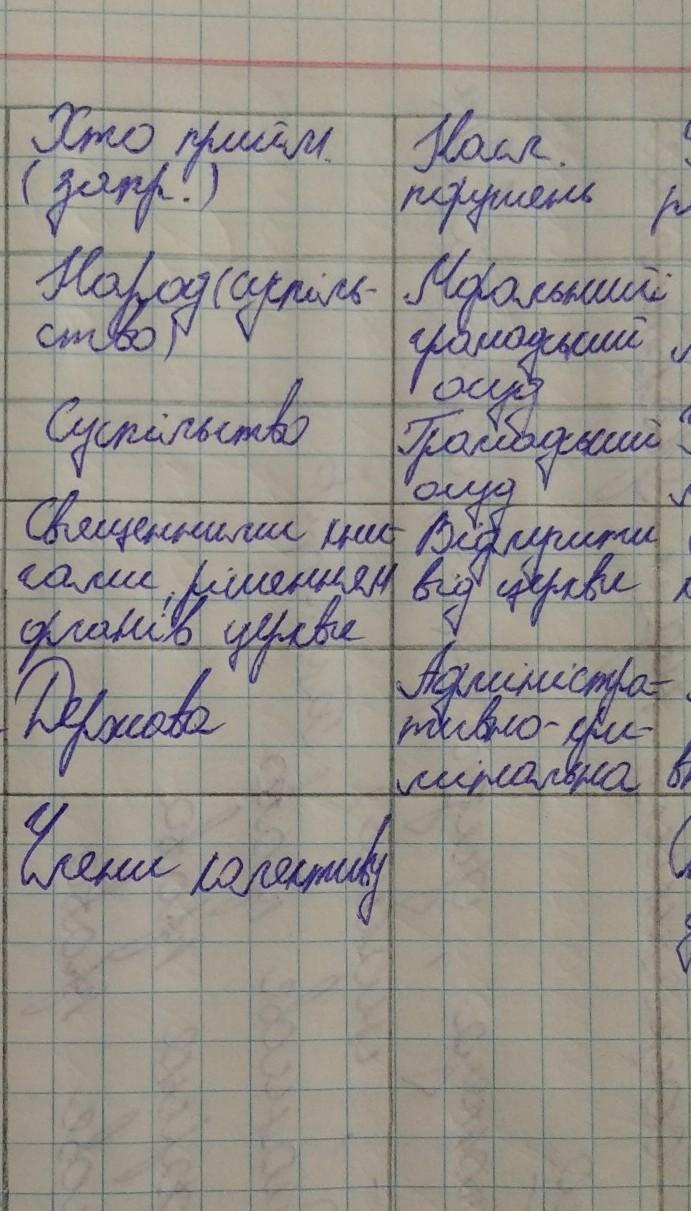 Хто прийм.
(запр.)
Насл.
порушень
Народ (суспіль-
ство)
Моральний
громадський
осуд
Суспільство
Громадський
осуд
Священними кни-
гами, рішенням
органів церкви
Відлучити
від церкви
Держава
Адміністра-
тивно-кри-
мінальна
Члени колективу